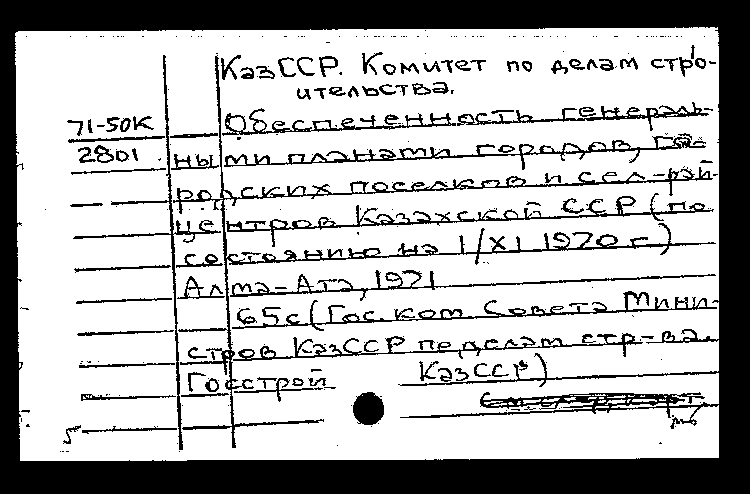 КазССР. Комитет по делам стро-
ительства.
71-50К Обеспеченность генераль-
2801 ными планами городов, го-
родских поселков и сел-рай
центров Казахской ССР (по
состоянию на 1/XI 1970 г.)
Алма-Ата, 1971
65с (Гос. ком. Совета Мини-
стров КазССР по делам стр-ва.
Госстрой КазССР)